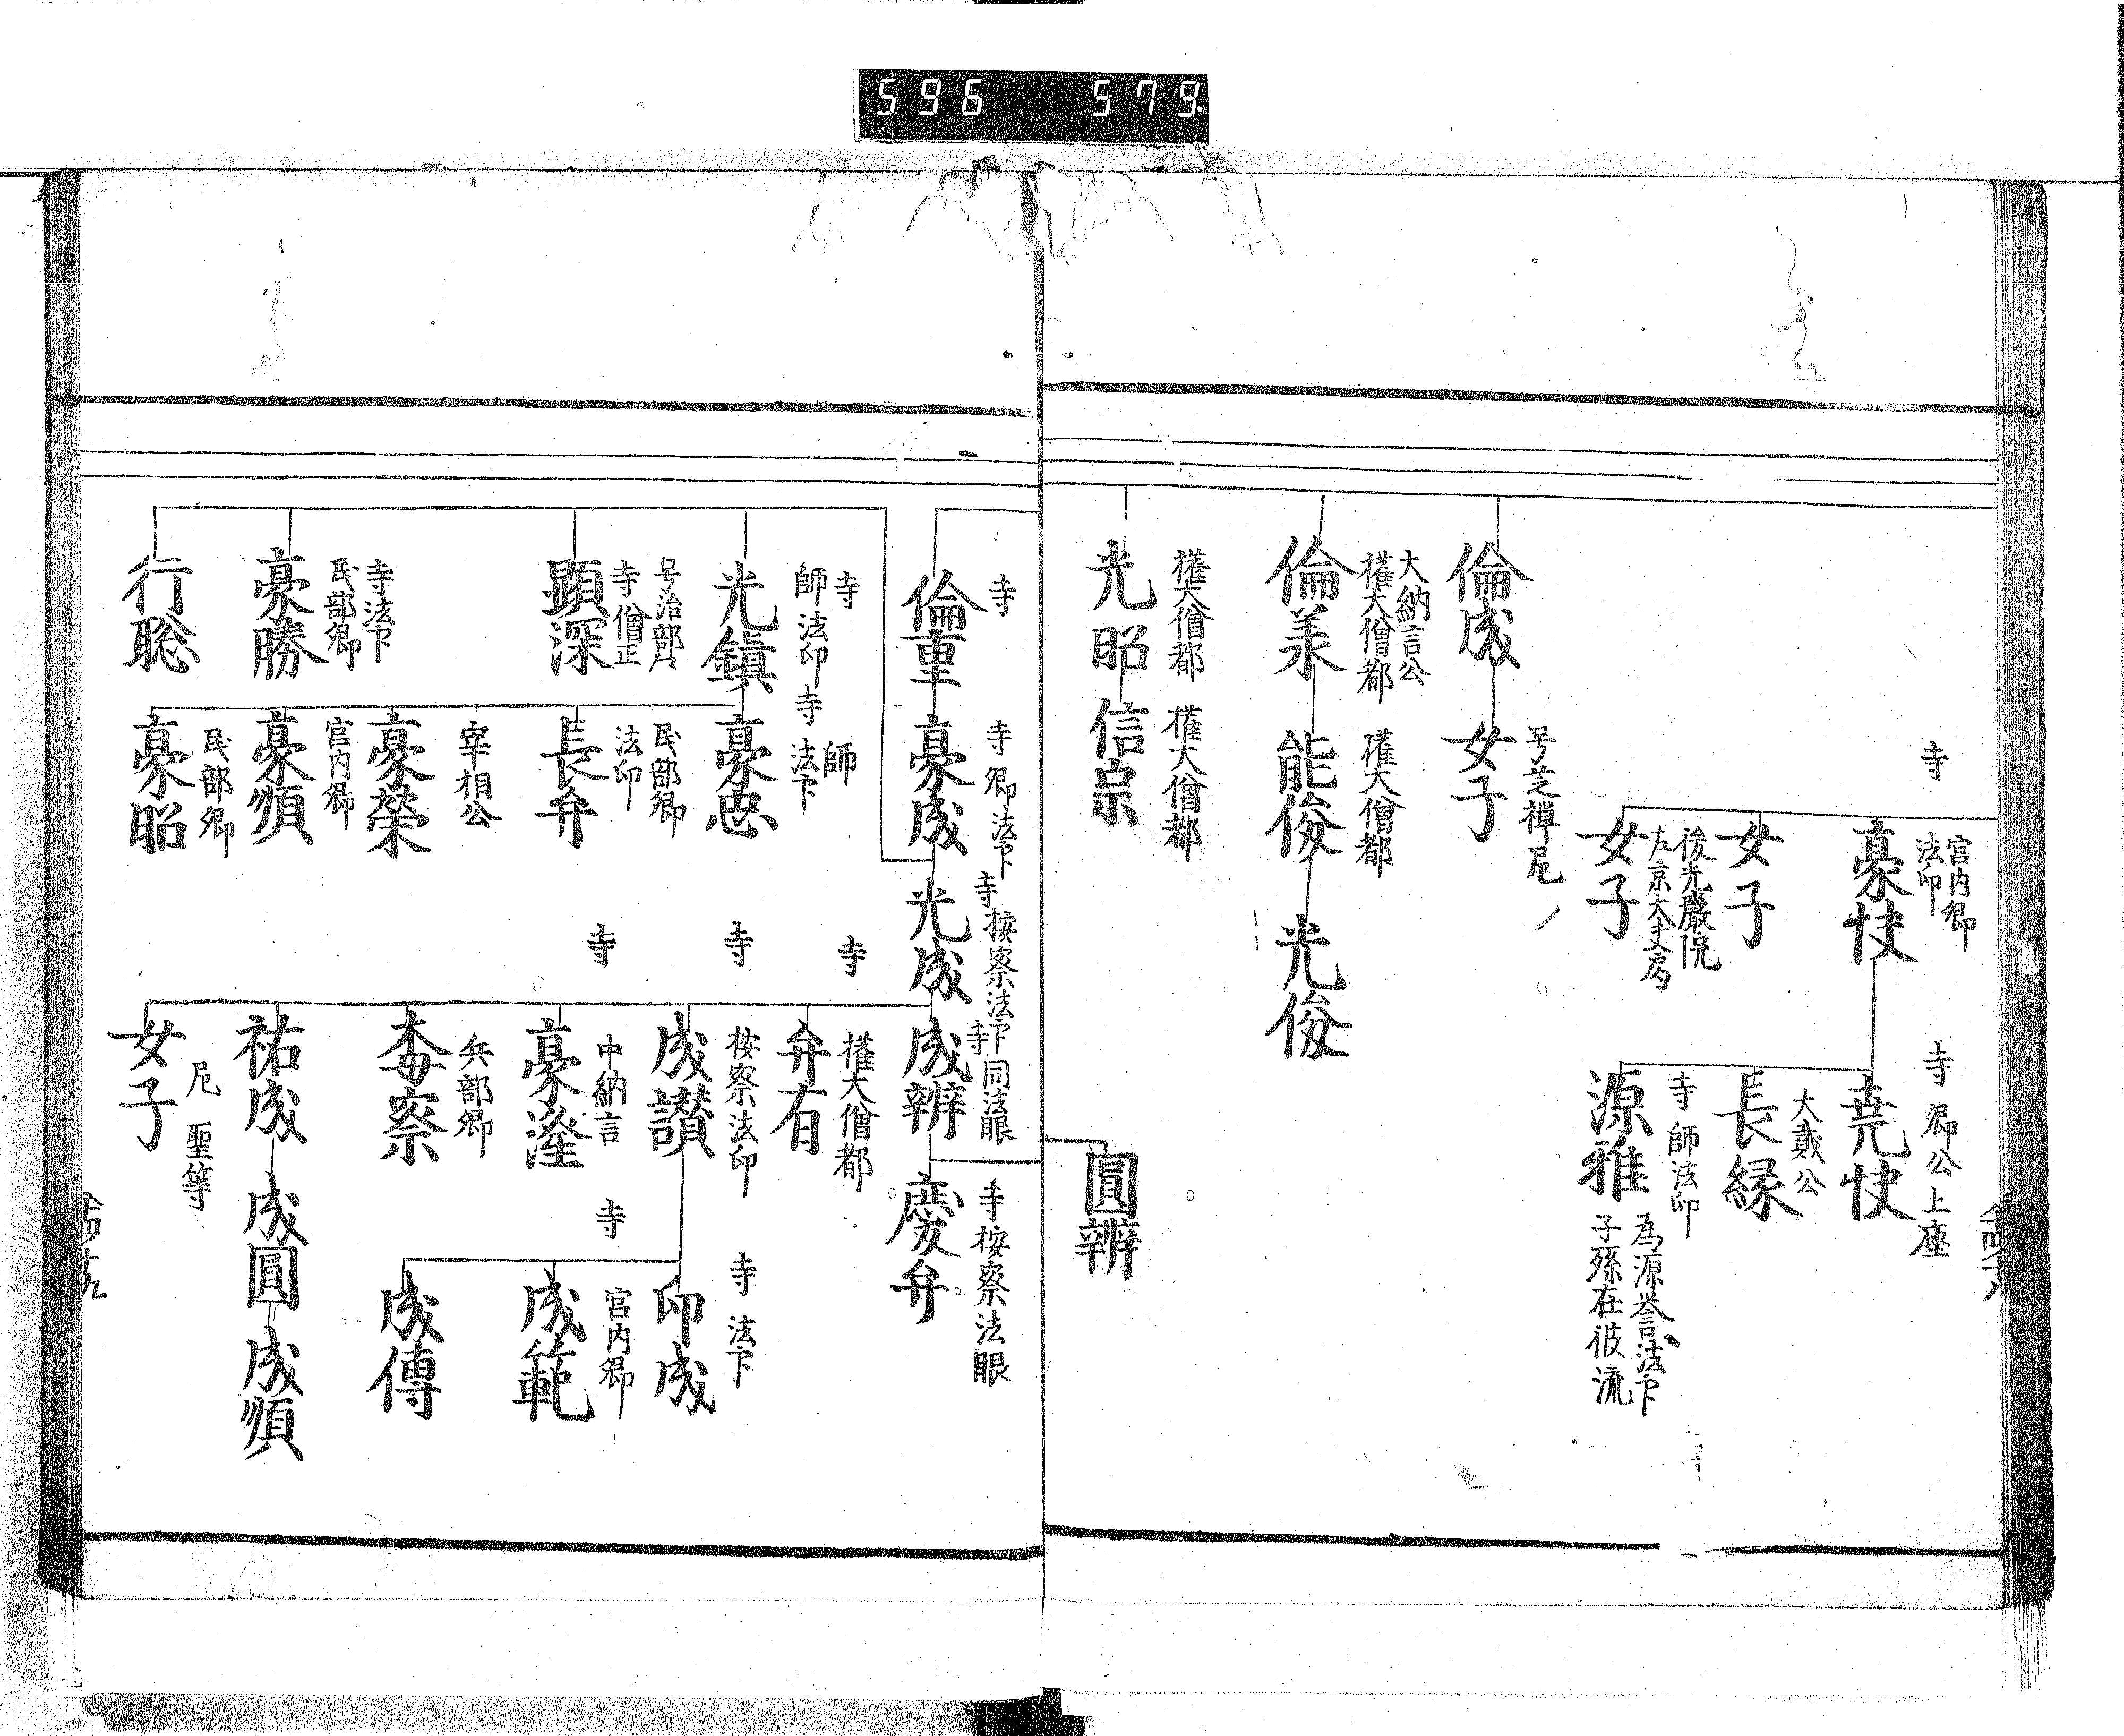 596 579
寺
宮内卿
法印
豪快
女子
後光嚴院
左京大夫局
女子
寺 卿公上座
堯快
大貳公
長縁
寺 師法印
源雅
為源誉法下
子孫在彼流
倫成
号芝禪尼
女子
大納言公
權大僧都
倫羕
權大僧都
能俊
光俊
權大僧都
光昭
權大僧都
信宗
圓辨
寺
倫重
寺 卿法下
豪成
寺按察法下
光成
寺同法眼
成辨
寺按察法眼
慶弁
寺
師法印
光鎮
寺 師
法下
豪忠
号治部卩
寺僧正
顕深
民部卿
法印
長弁
宰相公
豪榮
寺法下
民部卿
豪勝
宮内卿
豪順
行聡
民部卿
豪昭
寺
權大僧都
弁有
寺
按察法印
成讃
寺 法下
印成
寺
中納言
豪瀣
寺
宮内卿
成範
成傳
兵部卿
祐成
成圓
成順
尼 聖等
女子